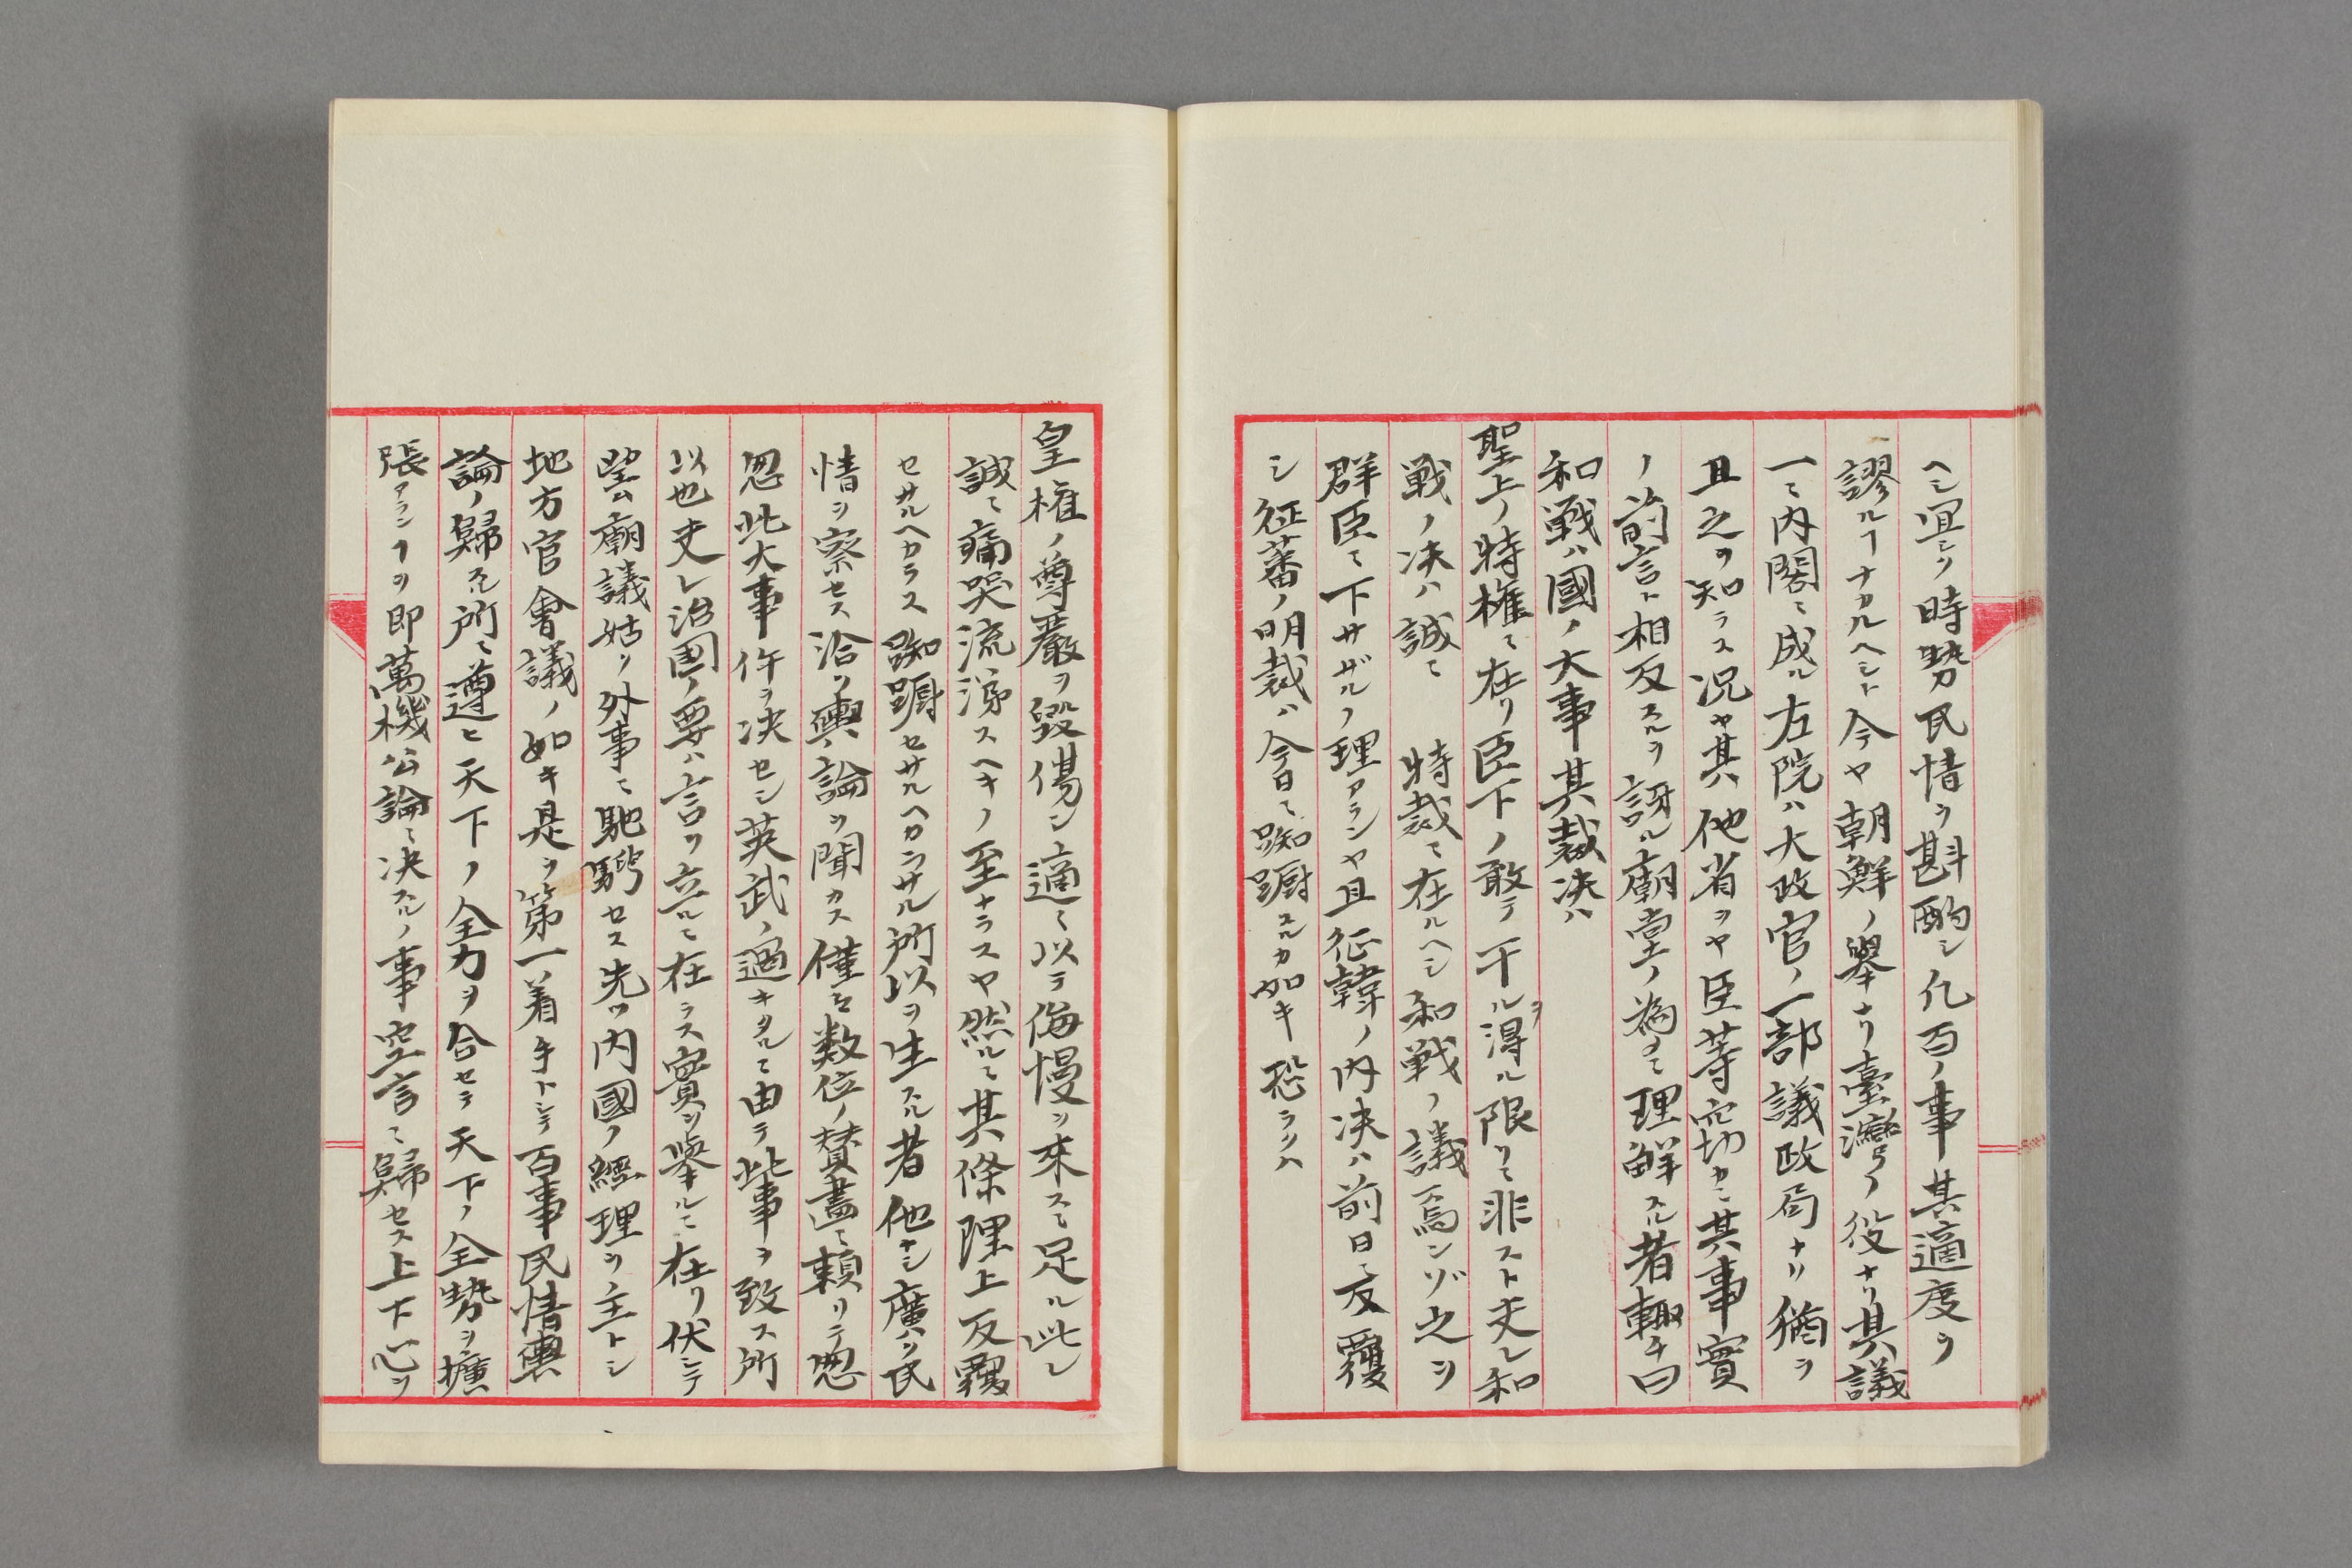 ヘシ宜シク時勢民情ヲ斟酌シ凡百ノ事其適度ヲ
謬ルヿナカルヘシト今ヤ朝鮮ノ擧ナリ臺灣ノ役ナリ其議
一ニ内閣ニ成ル左院ハ大政官ノ一部議政局ナリ猶ヲ
且之ヲ知ラス况ヤ其他省ヲヤ臣等窃カニ其事實
ノ前言ト相反スルヲ訝ル廟堂ノ為メニ理觧スル者輙チ曰
和戰ハ國ノ大事其裁决ハ
聖上ノ特權ニ在リ臣下ノ敢テ干ルヲ得ル限リニ非スト夫レ和
戰ノ决ハ誠ニ　特裁ニ在ルヘシ和戰ノ議焉ンゾ之ヲ
群臣ニ下サザルノ理アランヤ且征韓ノ内决ハ前日ニ反覆
シ征蕃ノ明裁ハ今日ニ踟蹰スルカ如キ恐ラクハ
皇権ノ尊嚴ヲ毀傷シ適々以テ侮慢ヲ來スニ足ル此レ
誠ニ痛哭流涕スヘキノ至ナラスヤ然ルニ其條理上反覆
セサルヘカラス踟蹰セサルヘカラサル所以ヲ生スル者他ナシ廣ク民
情ヲ察セス洽ク輿論ヲ聞カス僅ニ数位ノ賛畫ニ頼リテ怱
忽此大事件ヲ决セシ英武ノ過キタルニ由テ此事ヲ致ス所
以也夫レ治国ノ要ハ言ヲ立ルニ在ラス實ヲ擧ルニ在リ伏シテ
望ム廟議姑ク外事ニ馳騁セス先ツ内國ノ經理ヲ主トシ
地方官會議ノ如キ是ヲ第一着手トシテ百事民情輿
論ノ歸スル所ニ遵ヒ天下ノ全力ヲ合セテ天下ノ全勢ヲ擴
張アランヿヲ即萬機公論ニ决スルノ事空言ニ歸セス上下心ヲ